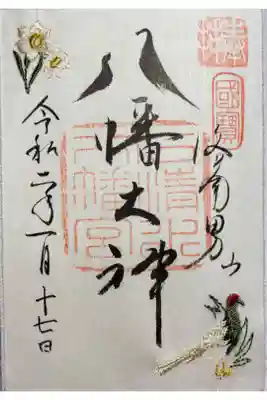 奉拝
國寶
洛南男山
八幡大神
石清水八幡宮
令和二年一月十七日